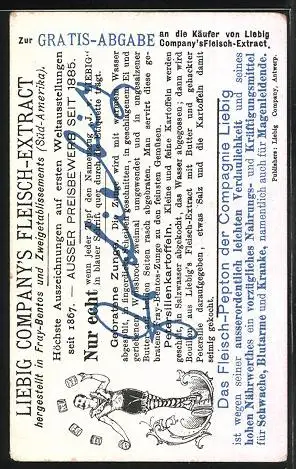 Zur GRATIS-ABGABE an die Käufer von Liebig
Company's Fleisch-Extract.
LIEBIG COMPANY'S FLEISCH-EXTRACT
hergestellt in Fray-Bentos und Zweigetablissements (Süd-Amerika).
Höchste Auszeichnungen auf ersten Weltausstellungen
seit 1867. AUSSER PREISBEWERB SEIT 1885.
Nur echt wenn jeder Topf den Namenszug „J. v. LIEBIG“
in blauer Schrift quer durch die Etiquette trägt.
J. v. Liebig
Gebratene Zunge. Die Zunge wird mit warmem Wasser
abgespült, in fingerdicke Scheiben geschnitten, in geschlagenem Ei und
geriebenem Weissbrod zweimal umgewendet und in ungesalzener
Butter auf beiden Seiten rasch abgebraten. Man servirt diese ge-
bratene Fray-Bentos-Zunge zu den feinsten Gemüsen.
Petersilienkartoffeln. Kleine und feine Kartoffel werden
geschält, in Salzwasser abgekocht, das Wasser abgegossen; dann wird
Bouillon aus Liebig's Fleisch-Extract mit Butter und gehackter
Petersilie daraufgegeben, etwas Salz und die Kartoffeln damit
seimig gekocht.
Publishers: Liebig Company, Antwerp.
Das Fleisch-Pepton der Compagnie Liebig
ist wegen seiner ausserordentlich leichten Verdaulichkeit und seines
hohen Nährwerthes ein vorzügliches Nahrungs- und Kräftigungsmittel
für Schwache, Blutarme und Kranke, namentlich auch für Magenleidende.